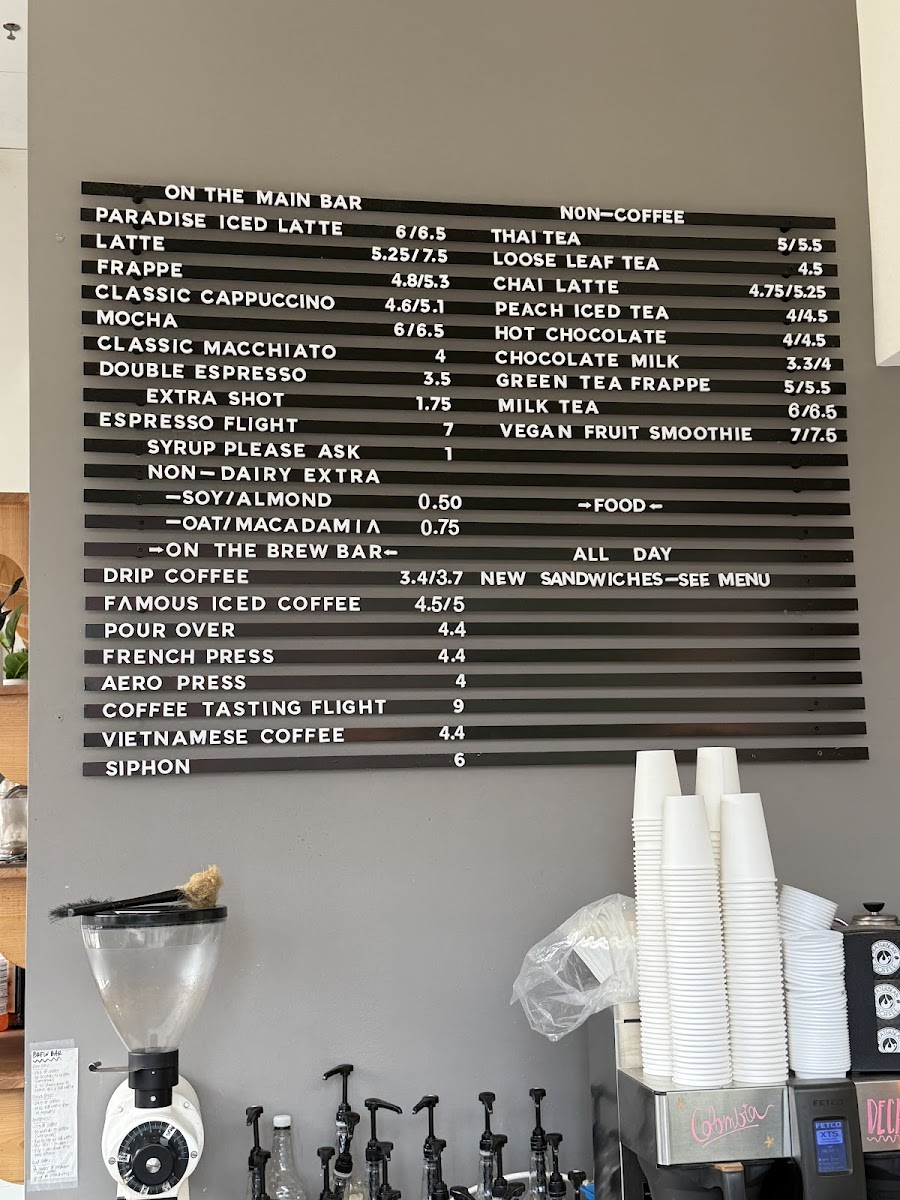 ON THE MAIN BAR
PARADISE ICED LATTE 6/6.5
LATTE 5.25/7.5
FRAPPE 4.8/5.3
CLASSIC CAPPUCCINO 4.6/5.1
MOCHA 6/6.5
CLASSIC MACCHIATO 4
DOUBLE ESPRESSO 3.5
EXTRA SHOT 1.75
ESPRESSO FLIGHT 7
SYRUP PLEASE ASK 1
NON-DAIRY EXTRA
-SOY/ALMOND 0.50
-OAT/MACADAMIA 0.75
→ON THE BREW BAR←
DRIP COFFEE 3.4/3.7
FAMOUS ICED COFFEE 4.5/5
POUR OVER 4.4
FRENCH PRESS 4.4
AERO PRESS 4
COFFEE TASTING FLIGHT 9
VIETNAMESE COFFEE 4.4
SIPHON 6
NON-COFFEE
THAI TEA 5/5.5
LOOSE LEAF TEA 4.5
CHAI LATTE 4.75/5.25
PEACH ICED TEA 4/4.5
HOT CHOCOLATE 4/4.5
CHOCOLATE MILK 3.3/4
GREEN TEA FRAPPE 5/5.5
MILK TEA 6/6.5
VEGAN FRUIT SMOOTHIE 7/7.5
→FOOD←
ALL DAY
NEW SANDWICHES-SEE MENU
BREW BAR
Colombia
FETCO
FETCO
XTS
DECA